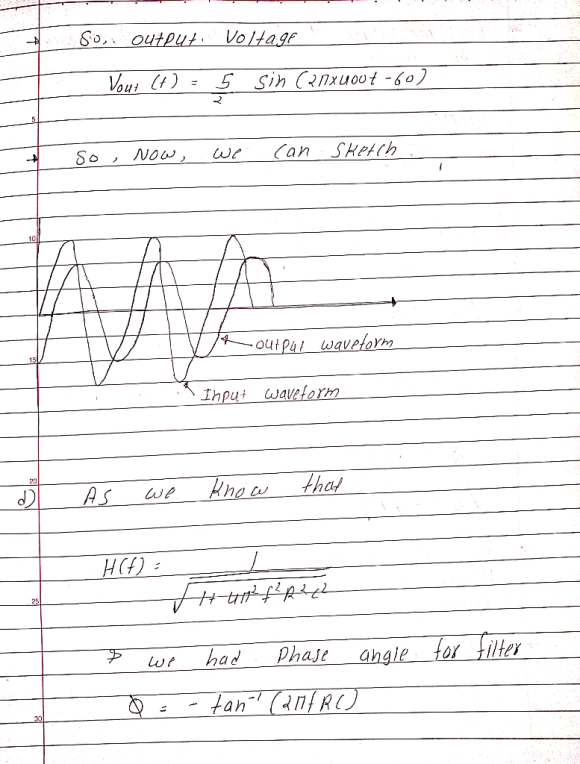 → So, output. Voltage
Vout (t) = 5/2 sin (2π×400t - 60)
5
→ So, Now, we can sketch.
10
15
output waveform
Input waveform
20
d) As we know that
H(f) = 1/√(1+4π²f²R²c²)
25
→ we had Phase angle for filter
Φ = - tan⁻¹ (2πfRC)
30